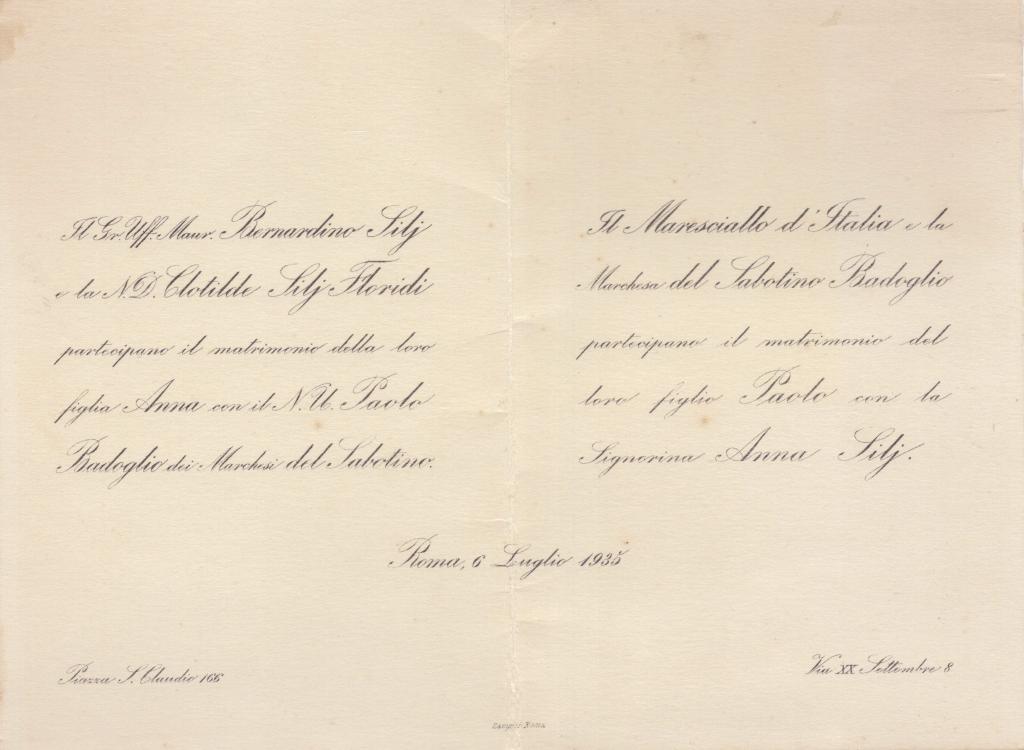 Il Gr. Uff. Maur. Bernardino Silj
e la N.D. Clotilde Silj Floridi
partecipano il matrimonio della loro
figlia Anna con il N.U. Paolo
Badoglio dei Marchesi del Sabotino.
Il Maresciallo d'Italia e la
Marchesa del Sabotino Badoglio
partecipano il matrimonio del
loro figlio Paolo con la
Signorina Anna Silj.
Roma, 6 Luglio 1935
Piazza S. Claudio 166
Via XX Settembre 8
Roma